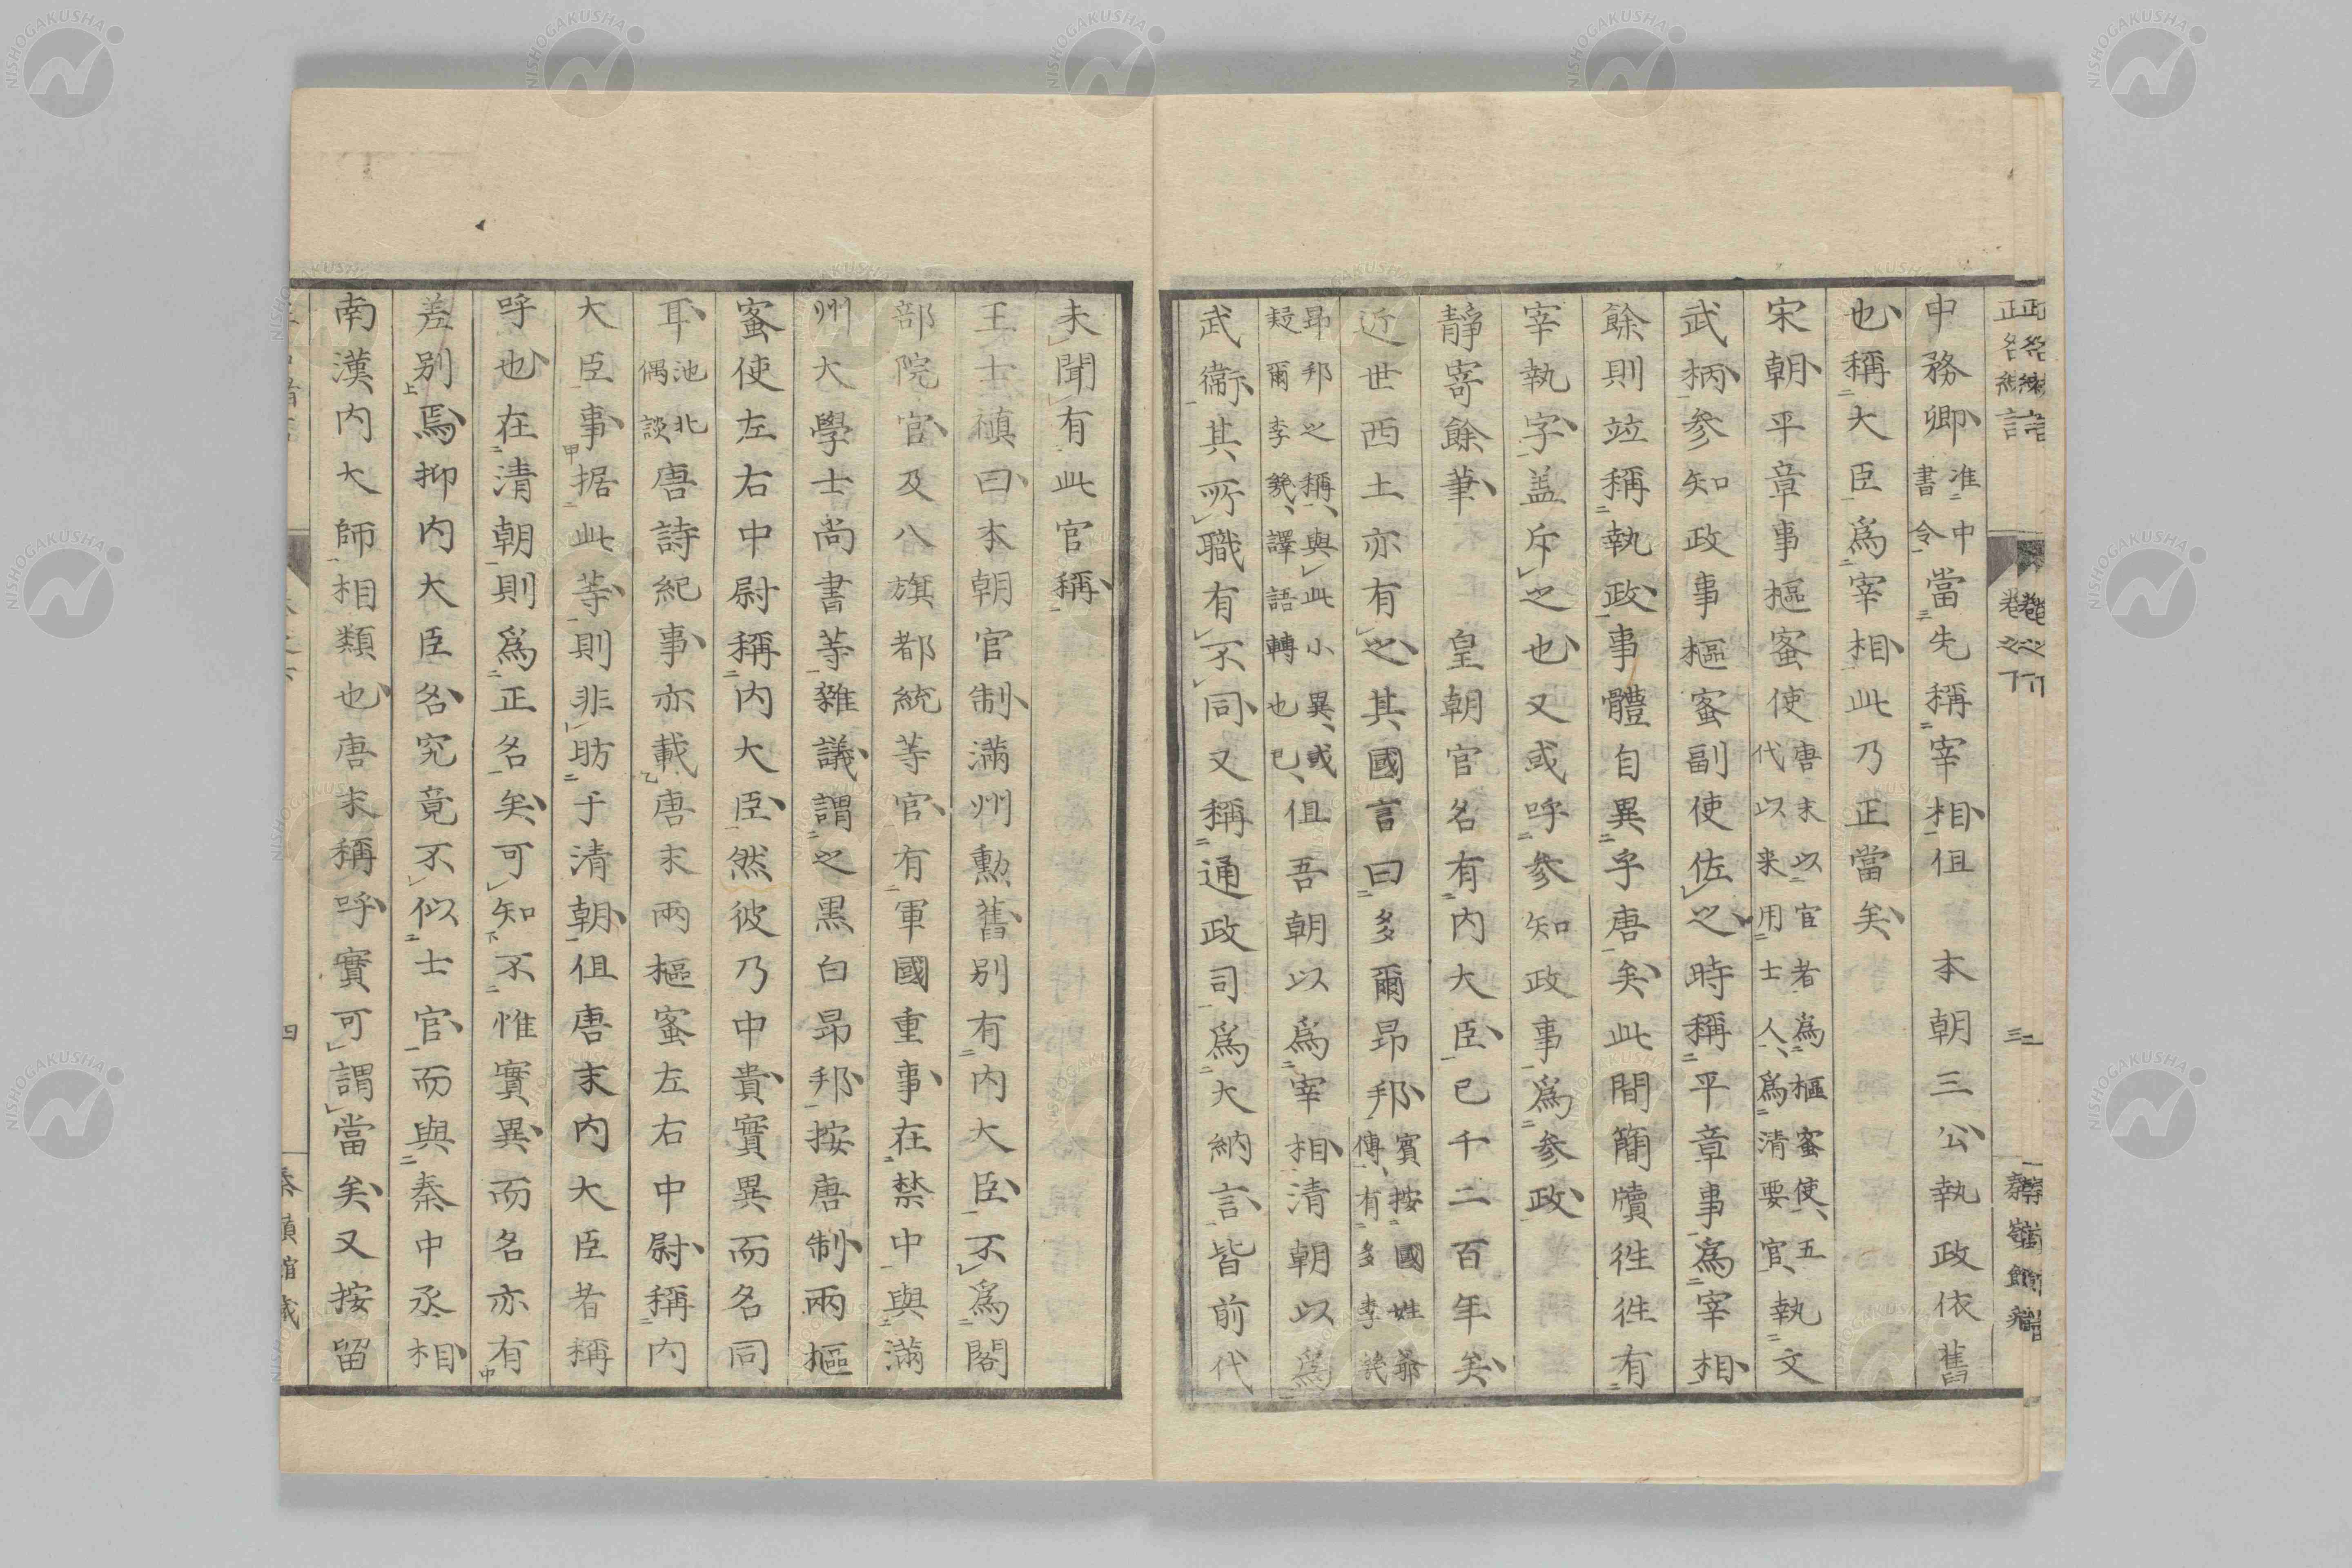 中務卿准中書令當先稱宰相但 本朝三公執政依舊
也稱大臣爲宰相此乃正當矣
宋朝平章事樞密使唐末以宦者爲樞密使五代以来用士人爲清要官執文
武柄參知政事樞密副使佐之時稱平章事爲宰相
餘則竝稱執政事體自異乎唐矣此間簡牘徃徃有
宰執字盖斥之也又或呼參知政事爲參政
靜寄餘筆 皇朝官名有内大臣已千二百年矣
近世西土亦有之其國言曰多爾昻邦賓按國姓爺傳有多李㡬
昻邦之稱與此小異或疑爾李㡬譯語轉也已但吾朝以爲宰相清朝以爲
武衞其所職有不同又稱通政司爲大納言皆前代
未聞有此官稱
王士禎曰本朝官制滿州勲舊别有内大臣不爲閣
部院官及八旗都統等官有軍國重事在禁中與滿
州大學士尚書等雜議謂之黒白昻邦按唐制兩樞
密使左右中尉稱内大臣然彼乃中貴實異而名同
耳池北偶談唐詩紀事亦載唐末兩樞密左右中尉稱内
大臣事据此等則非昉于清朝但唐末内大臣者稱
呼也在清朝則爲正名矣可知不惟實異而名亦有
差别焉抑内大臣名究竟不似士官而與秦中丞相
南漢内大師相類也唐末稱呼實可謂當矣又按留